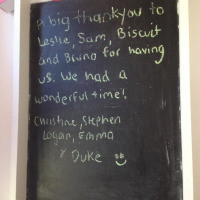 A big thankyou to
Leslie, Sam, Biscuit
and Bruno for having
us. We had a
wonderful time!
Christine, Stephen
Logan, Emma
& Duke